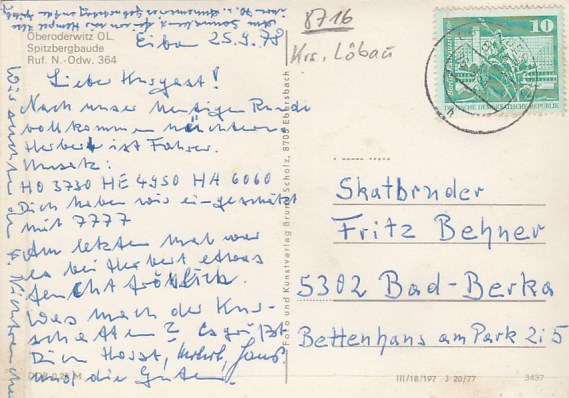 Oberoderwitz OL.
Spitzbergbaude
Ruf. N.-Odw. 364
Eiba 25.9.78
Lieber Kurgast!
Nach unser heutigen Runde
vollkommen nüchtern.
Herbert ist Fahrer.
Umsatz:
HO 3730 HE 4950 HA 6060
Dich haben wir eingeschätzt
mit 7777
Am letzten mal war
es bei Herbert etwas
feucht fröhlich.
Was mach der Kur-
schatten? Es grüßt
Dich Horst,
und die Guten.
DDR 0,25 M
Foto und Kunstverlag Bruno Scholz, 8705 Ebersbach
8716
Krs. Löbau
10
DEUTSCHE DEMOKRATISCHE REPUBLIK
Skatbruder
Fritz Behner
5302 Bad-Berka
Bettenhaus am Park 2i5
III/18/197 J 20/77
3497